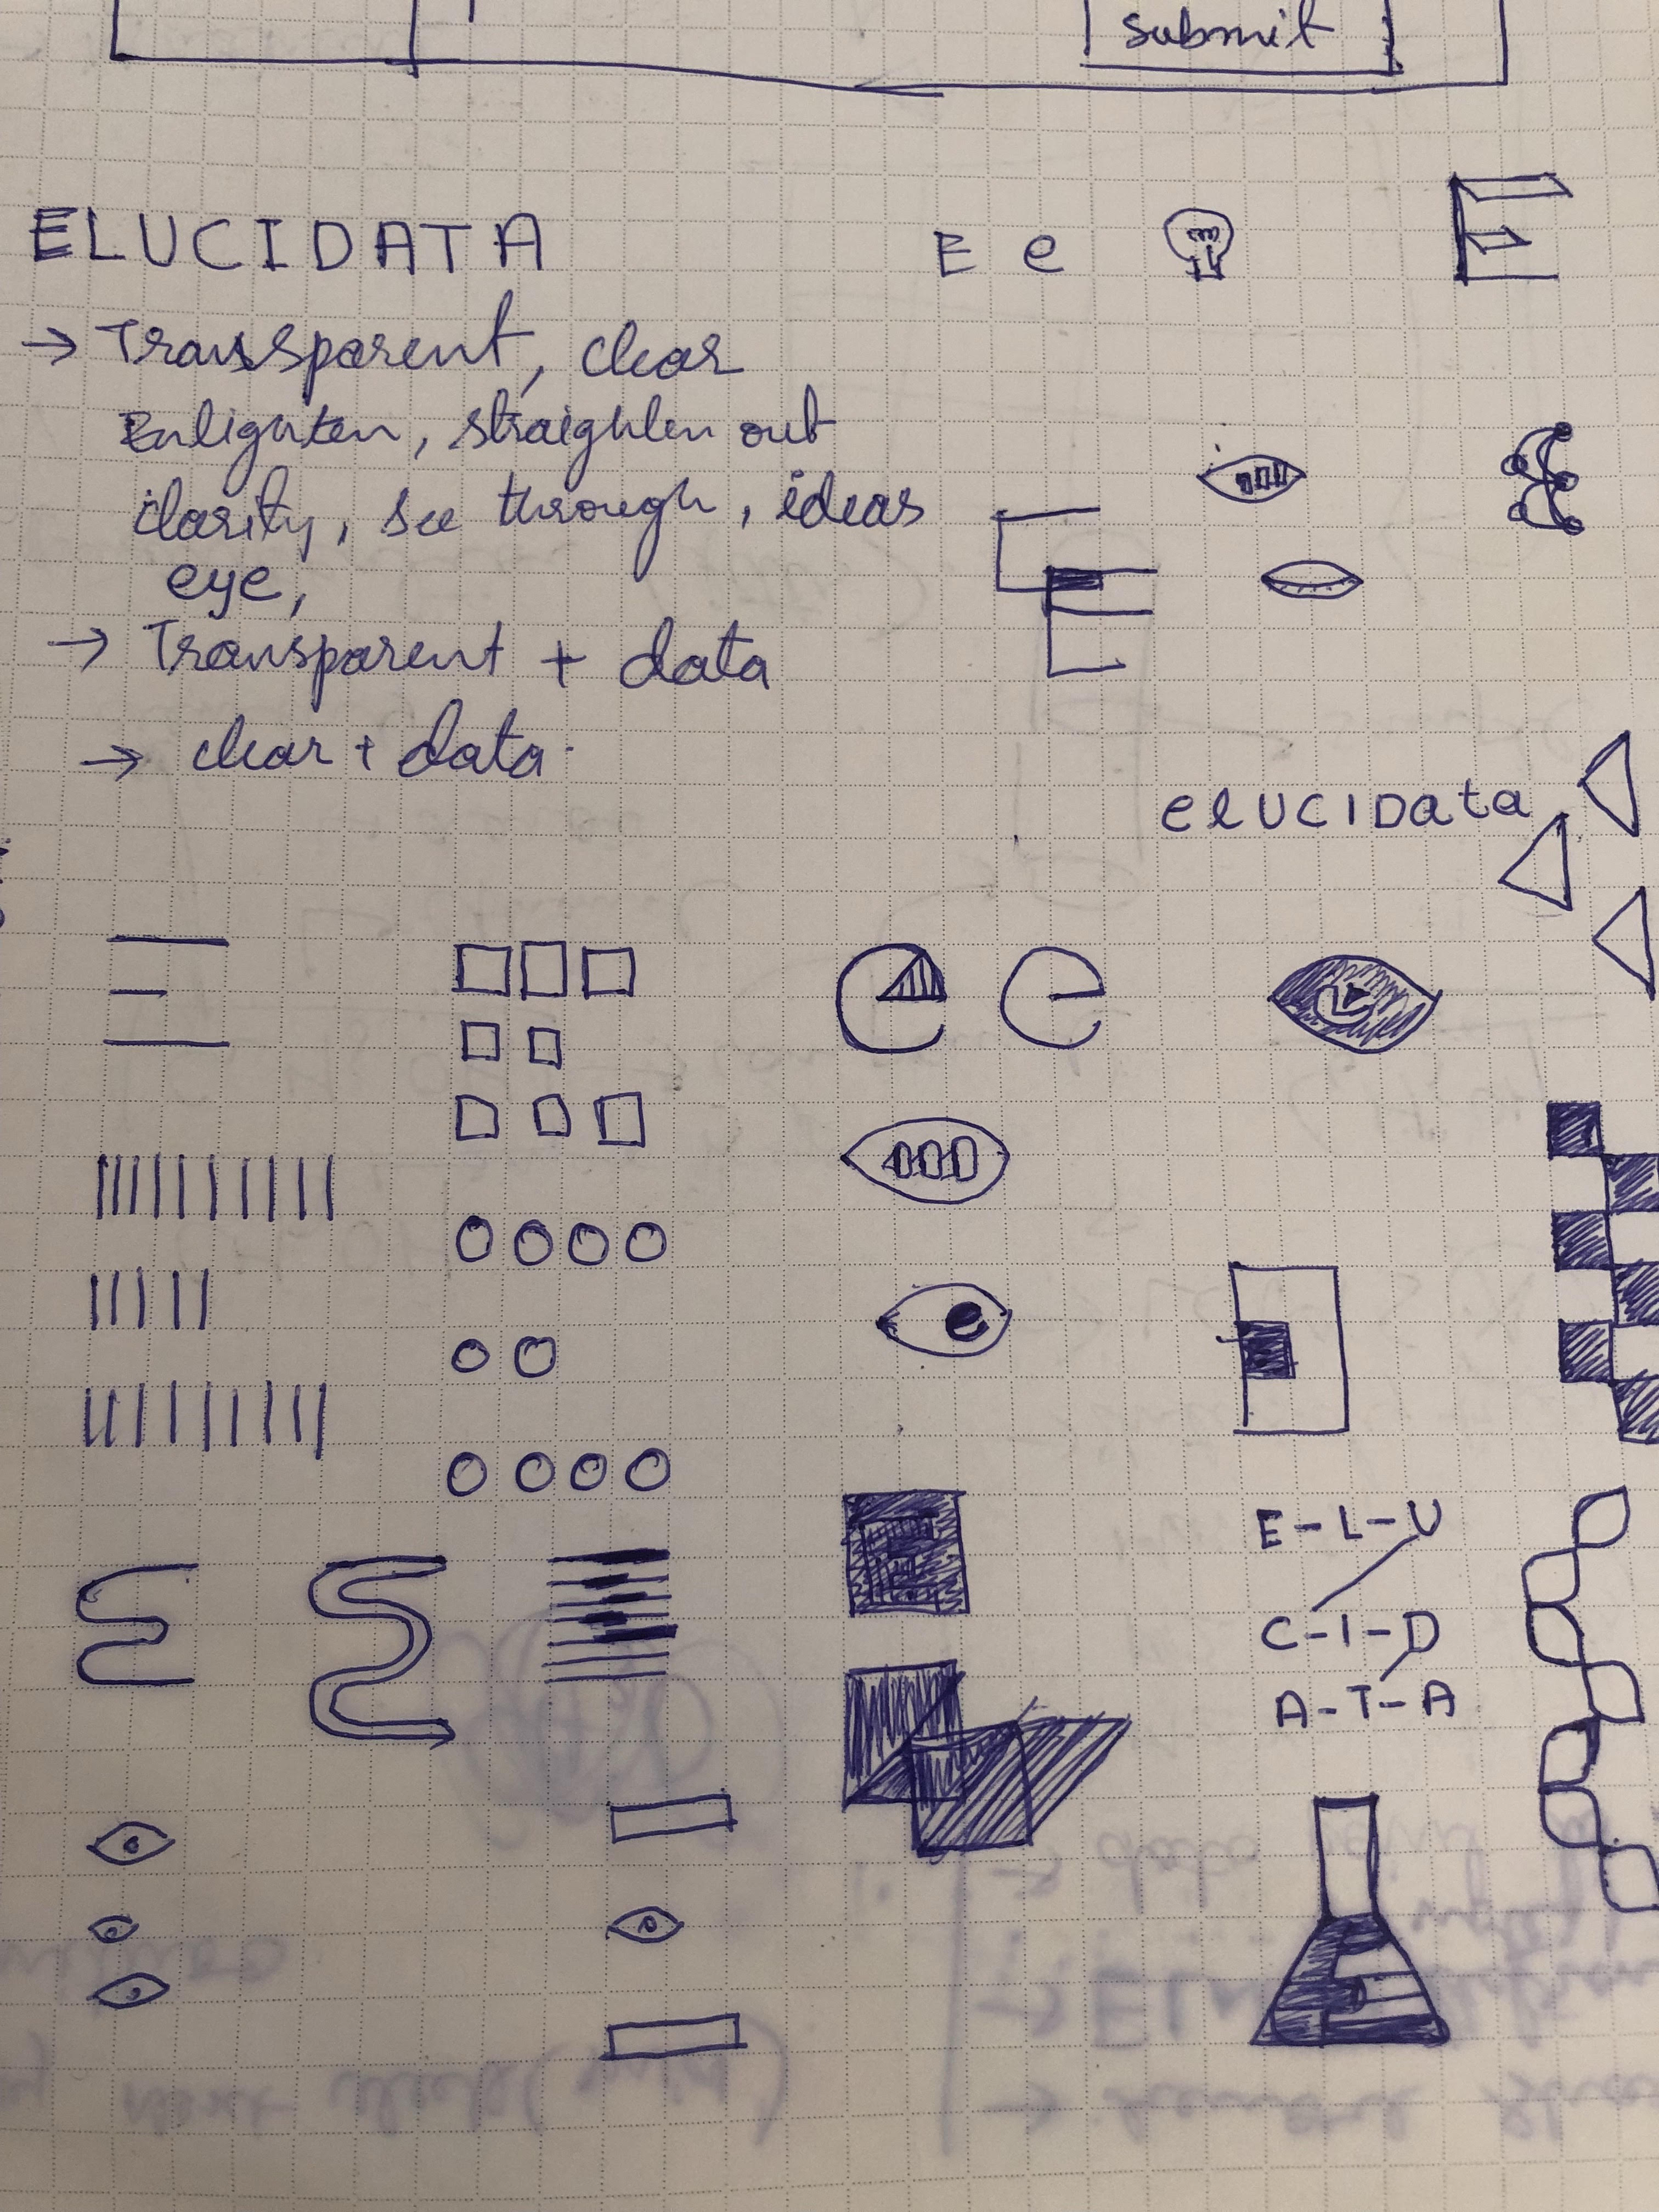 submit
ELUCIDATA
E e
E
→ Transparent, clear
Enlighten, straighten out
clarity, see through, ideas
eye,
→ Transparent + data
→ clear + data
elUCIData
e e
E-L-U
C-I-D
A-T-A